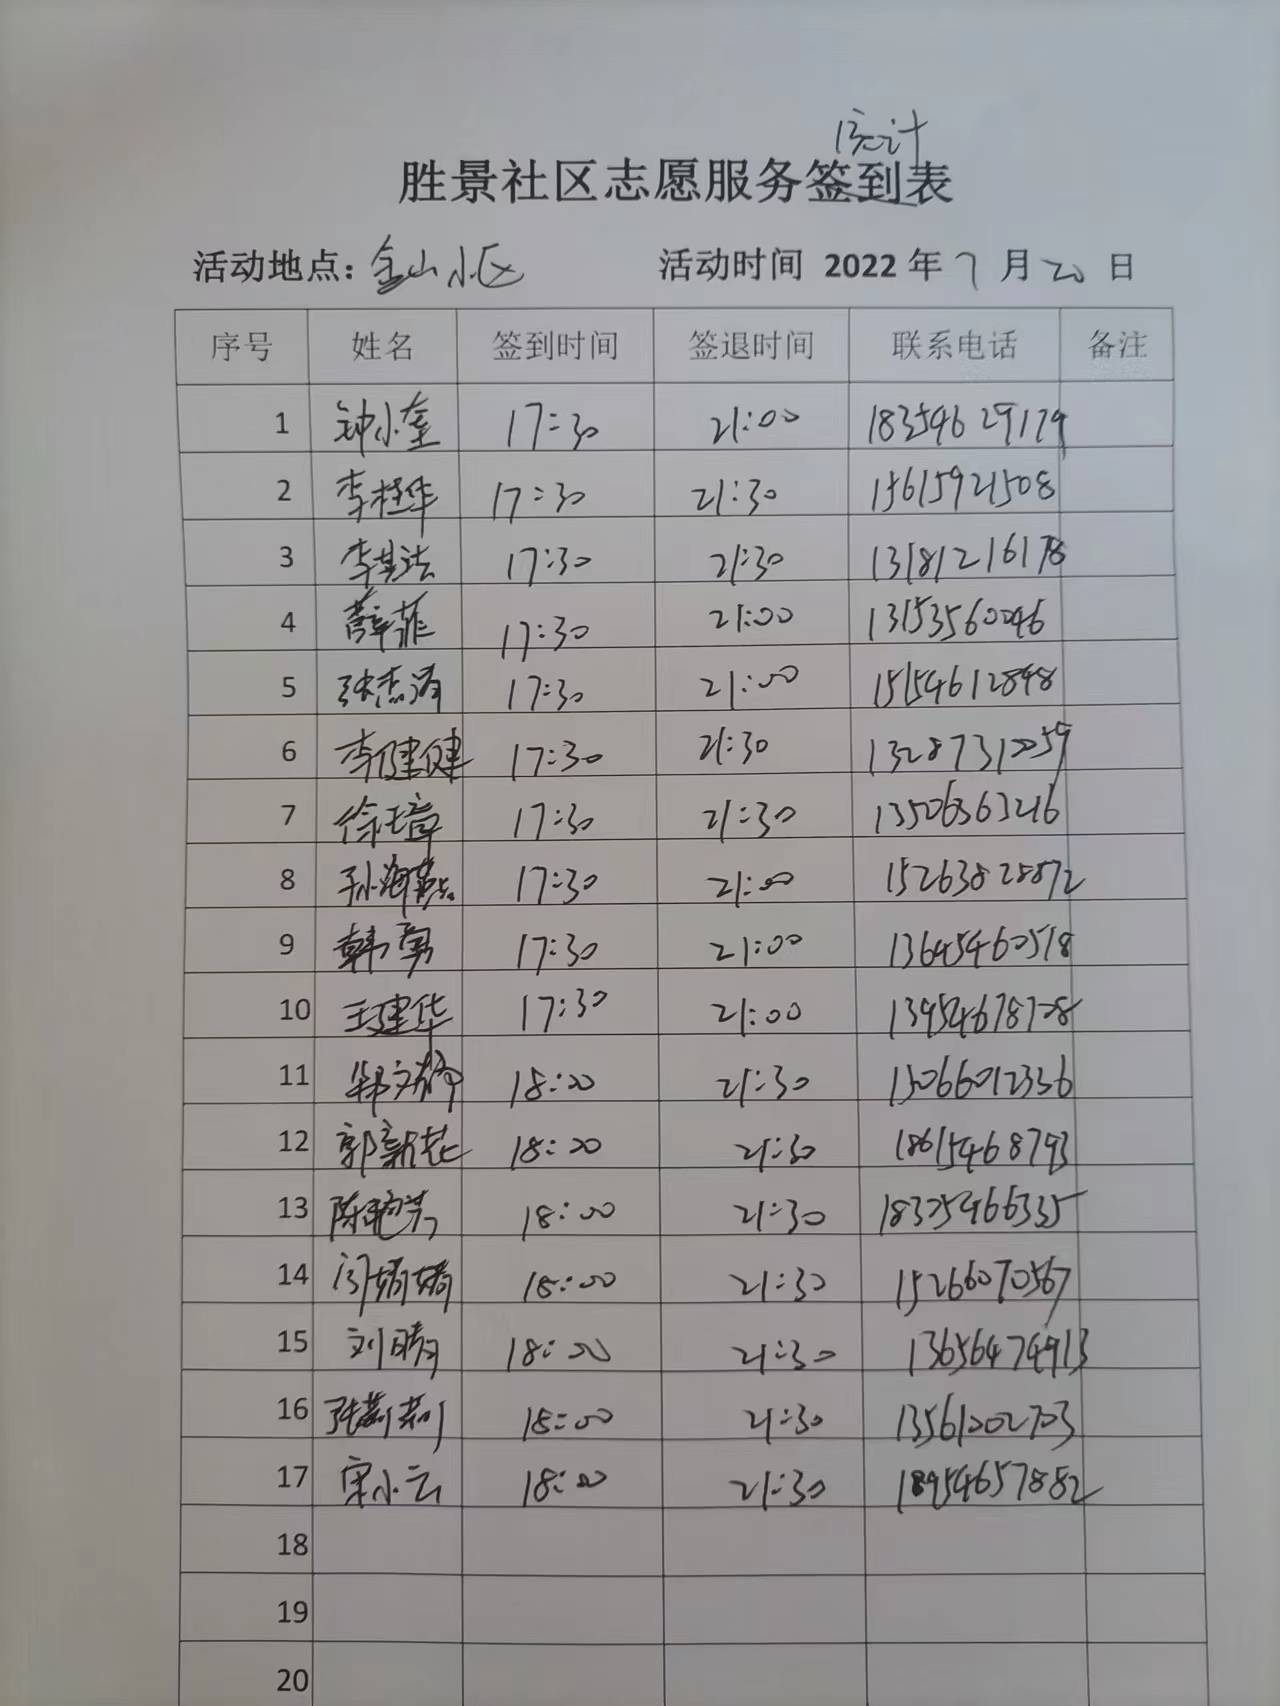 统计
胜景社区志愿服务签到表
活动地点：金山小区 活动时间 2022 年 7 月 20 日
序号 姓名 签到时间 签退时间 联系电话 备注
1 钟小奎 17:30 21:00 18354629179
2 李桂华 17:30 21:30 15615921508
3 李其法 17:30 21:30 13181216178
4 薛菲 17:30 21:00 13153560046
5 张志涛 17:30 21:00 15154612898
6 李健健 17:30 21:30 13287310059
7 徐玉璋 17:30 21:30 13506363216
8 孙海燕 17:30 21:00 15263828872
9 韩勇 17:30 21:00 13645460518
10 王建华 17:30 21:00 13954678708
11 郑文静 18:00 21:30 15066012336
12 郭新花 18:00 21:30 18615468793
13 陈艳芳 18:00 21:30 18325466335
14 闫娟娟 18:00 21:30 15266070567
15 刘晴 18:00 21:30 13656474913
16 张莉莉 18:00 21:30 13561002703
17 宋小云 18:00 21:30 18954657882
18
19
20